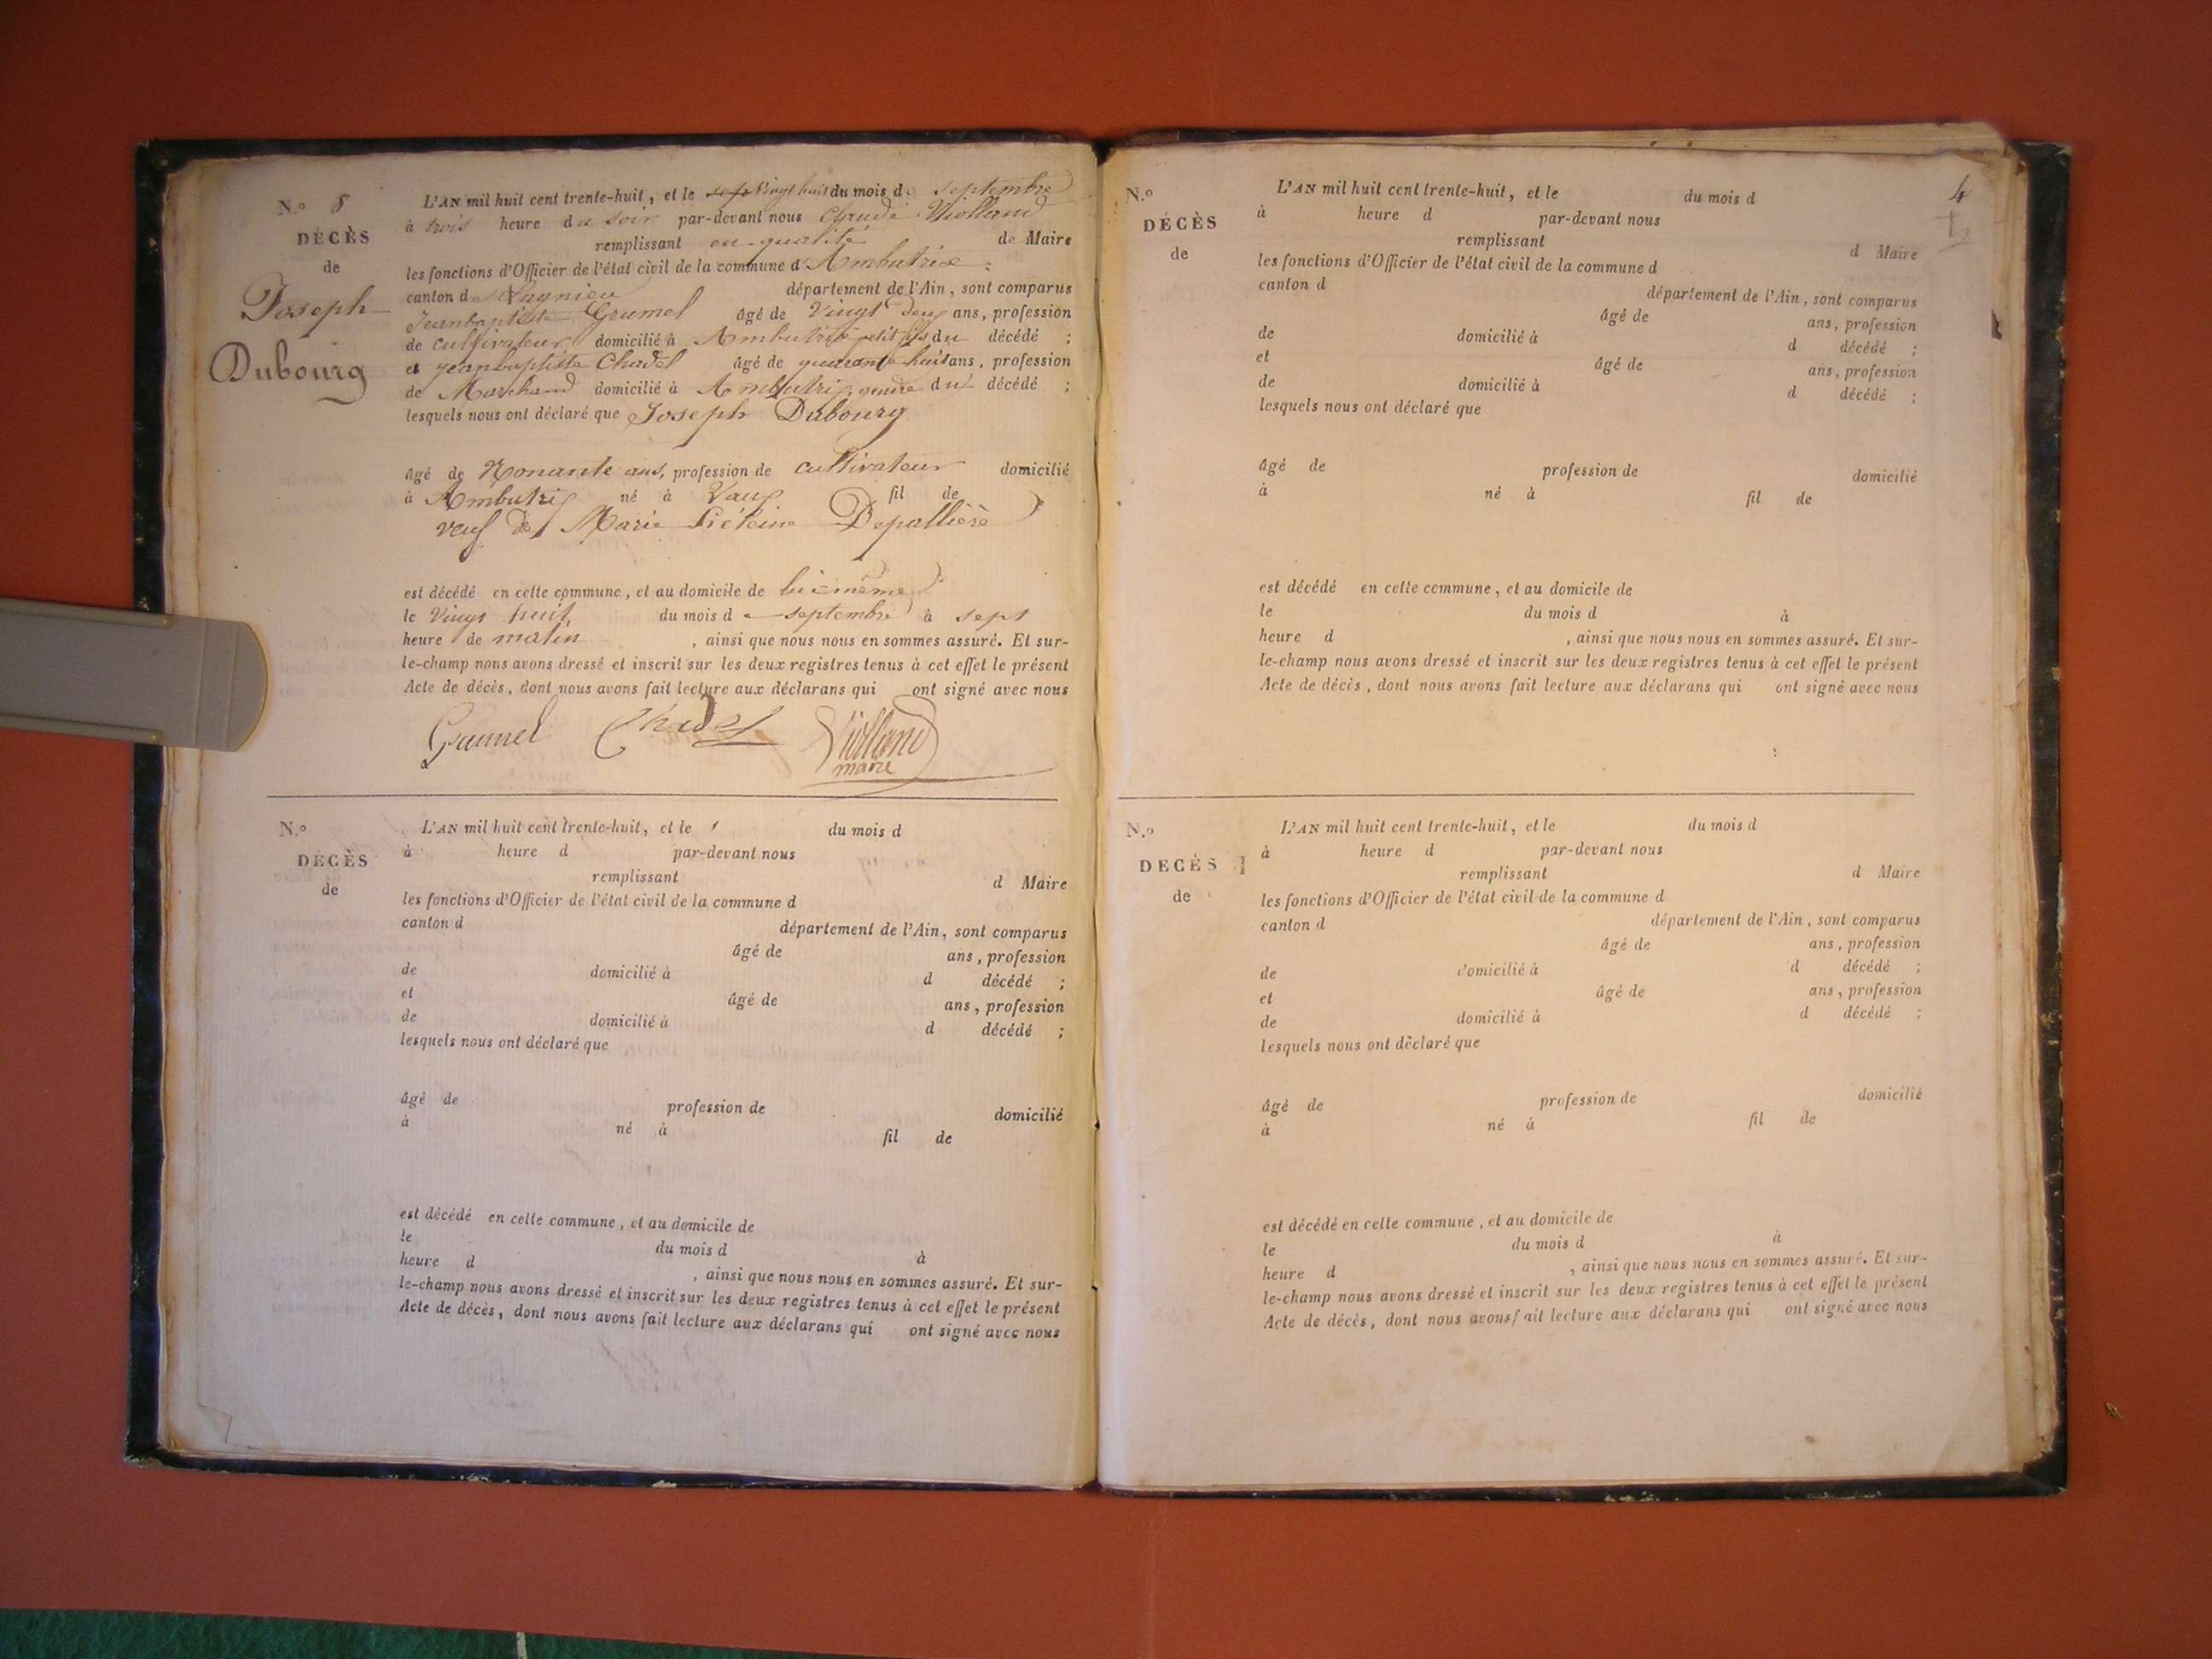 N.º 8
DÉCÈS
de
Joseph
Dubourg
L'AN mil huit cent trente-huit, et le sept Vingt huit du mois de septembre
à trois heure du soir par-devant nous Claude Violland
remplissant en qualité de Maire
les fonctions d'Officier de l'état civil de la commune d'Ambutrix
canton de Lagnieu département de l'Ain, sont comparus
Jeanbaptiste Grumel âgé de Vingt deux ans, profession
de cultivateur domicilié à Ambutrix petit fils du décédé ;
et jeanbaptiste Chadel âgé de quarante huit ans, profession
de Marchand domicilié à Ambutrix, gendre du décédé ;
lesquels nous ont déclaré que Joseph Dubourg
âgé de Nonante ans, profession de cultivateur domicilié
à Ambutrix né à Vaux fil de
veuf de Marie Depallière
est décédé en cette commune, et au domicile de lui-même
le Vingt huit, du mois de septembre à sept
heure de matin , ainsi que nous nous en sommes assuré. Et sur-
le-champ nous avons dressé et inscrit sur les deux registres tenus à cet effet le présent
Acte de décès, dont nous avons fait lecture aux déclarans qui ont signé avec nous
Grumel Chadel Violland
maire
N.º
DÉCÈS
de
L'AN mil huit cent trente-huit, et le du mois d
à heure d par-devant nous
remplissant d Maire
les fonctions d'Officier de l'état civil de la commune d
canton d département de l'Ain, sont comparus
âgé de ans, profession
de domicilié à d décédé ;
et âgé de ans, profession
de domicilié à d décédé ;
lesquels nous ont déclaré que
âgé de profession de domicilié
à né à fil de
est décédé en cette commune, et au domicile de
le du mois d à
heure d , ainsi que nous nous en sommes assuré. Et sur-
le-champ nous avons dressé et inscrit sur les deux registres tenus à cet effet le présent
Acte de décès, dont nous avons fait lecture aux déclarans qui ont signé avec nous
4
N.º
DÉCÈS
de
L'AN mil huit cent trente-huit, et le du mois d
à heure d par-devant nous
remplissant d Maire
les fonctions d'Officier de l'état civil de la commune d
canton d département de l'Ain, sont comparus
âgé de ans, profession
de domicilié à d décédé ;
et âgé de ans, profession
de domicilié à d décédé ;
lesquels nous ont déclaré que
âgé de profession de domicilié
à né à fil de
est décédé en cette commune, et au domicile de
le du mois d à
heure d , ainsi que nous nous en sommes assuré. Et sur-
le-champ nous avons dressé et inscrit sur les deux registres tenus à cet effet le présent
Acte de décès, dont nous avons fait lecture aux déclarans qui ont signé avec nous
N.º
DECÈS
de
L'AN mil huit cent trente-huit, et le du mois d
à heure d par-devant nous
remplissant d Maire
les fonctions d'Officier de l'état civil de la commune d
canton d département de l'Ain, sont comparus
âgé de ans, profession
de domicilié à d décédé ;
et âgé de ans, profession
de domicilié à d décédé ;
lesquels nous ont déclaré que
âgé de profession de domicilié
à né à fil de
est décédé en cette commune, et au domicile de
le du mois d à
heure d , ainsi que nous nous en sommes assuré. Et sur-
le-champ nous avons dressé et inscrit sur les deux registres tenus à cet effet le présent
Acte de décès, dont nous avons fait lecture aux déclarans qui ont signé avec nous